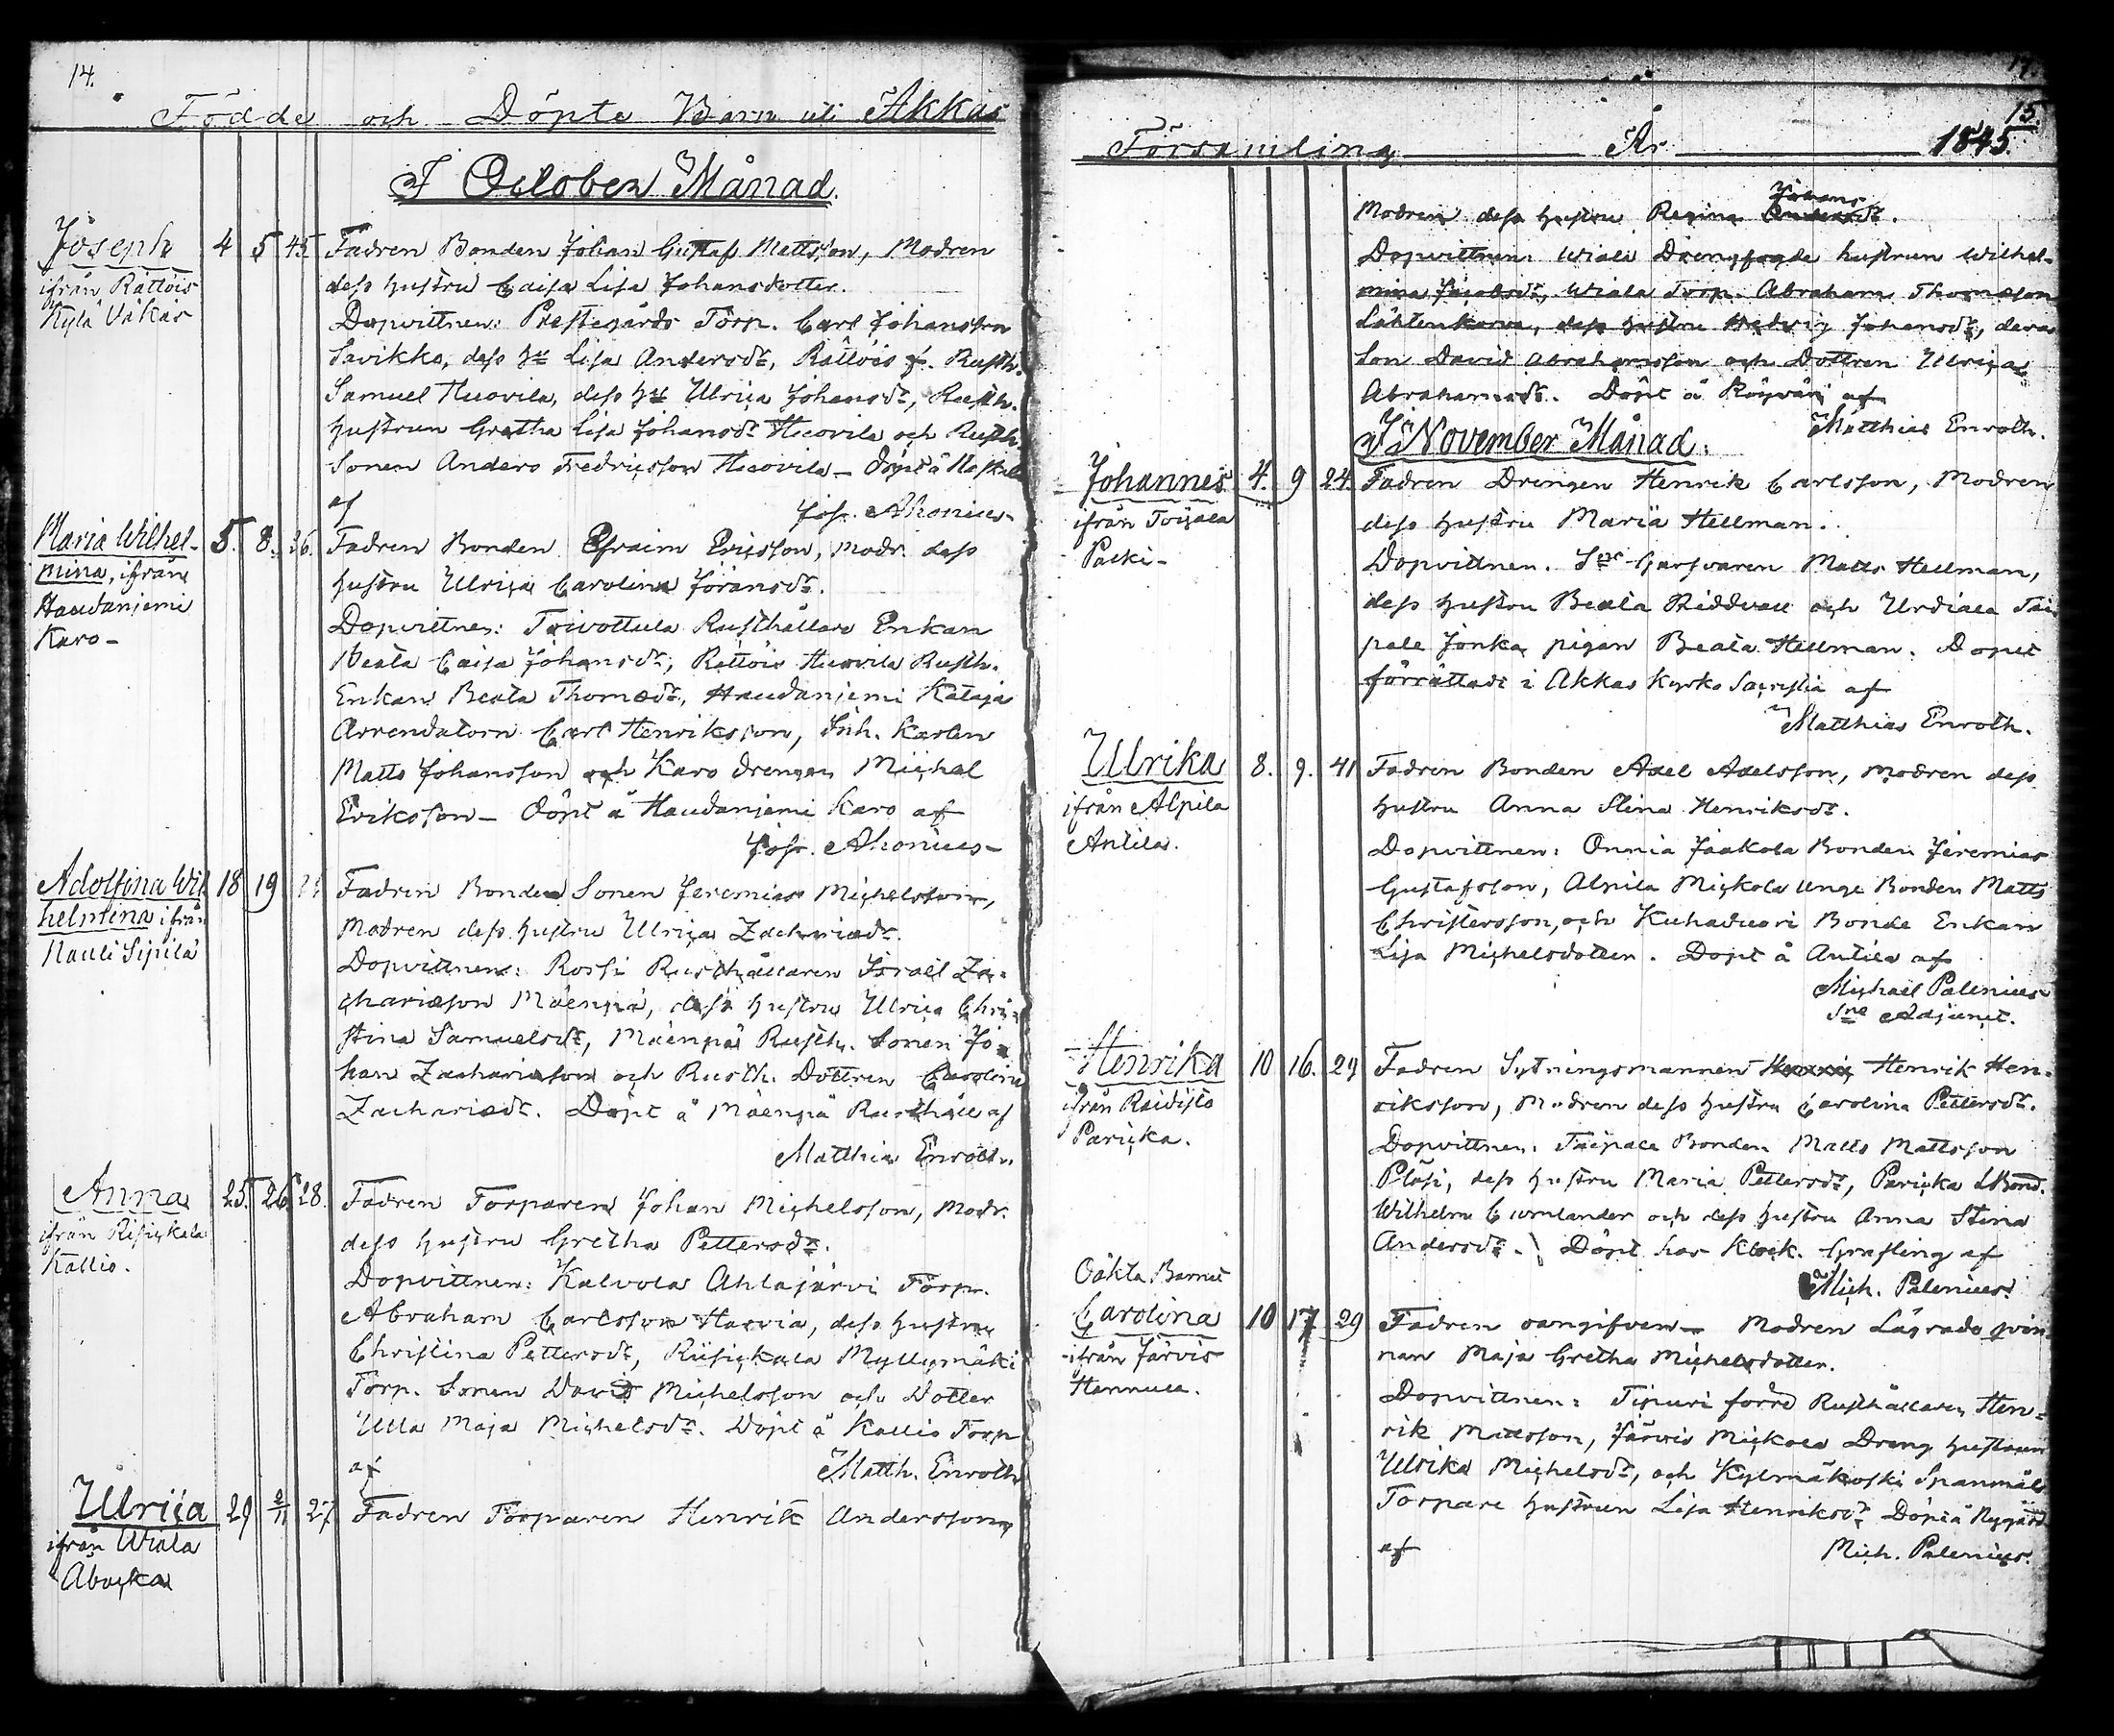 14.
Födde och Döpte Barn uti Akkas
I October Månad.
Joseph 4 5 45. Fadren Bonden Johan Gustaf Mattsson, Modren
ifrån Rättöis dess hustru Caisa Lisa Johansdotter.
Kylä
Dopvittnen: Prestegårds Torp. Carl Johansson
Savikko, dess hu Lisa Andersdr, Rättöis f. Rusth.
Samuel Huovila, dess hu Ulrica Johansdr, Rusth.
hustrun Gretha Lisa Johansdr Huovila och Rusth
Sonen Anders Fredricsson Huovila – döpt å
af
Jos. Ahonius –
Maria Wilhel- 5. 8. 36. Fadren Bonden Efraim Ericsson, Modr. dess
mina, ifrån hustru Ulrica Carolina Göransdr.
Haudanjemi
Karo –
Dopvittnen: Toivottula Rusthållare Enkan
Beata Caisa Johansdr, Rättöis Huovila Rusth.
Enkan Beata Thomædr, Haudanjemi Kataja
Arrendatorn Carl Henriksson, Inh. Karlen
Matts Johansson och Karo drengen Michel
Eriksson – döpt å Haudanjemi Karo af
Jos. Ahonius –
Adolfina Wil 18 19 Fadren Bonde Sonen Jeremias Michelsson,
helmina ifrån Modren dess hustru Ulrica Zachariædr.
Nauli Sipilä
Dopvittnen: Rossi Rusthållaren Israël Za-
chariæson Mäenpä, dess hustru Ulrica Chri-
stina Samuelsdr, Mäenpä Rusth. Sonen Jo-
han Zachariæson och Rusth. Dottren Carolina
Zachariædr. Döpt å Mäenpä Rusthåll af
Matthias Enroth.
Anna 25. 26 28. Fadren Torparen Johan Michelsson, Modr.
ifrån Risickala dess hustru Gretha Pettersdr.
Kallio.
Dopvittnen: Kalvola Ahlajärvi Torp.
Abraham Carlsson Harvia, dess hustru
Christina Pettersdr, Riisickala Myllymäki
Torp. Sonen David Michelsson och Dotter
Ulla Maja Michelsdr. Döpt å Kallio Torp
af Matth. Enroth
Ulrica 29 2/11 27 Fadren Torparen Henrik Andersson,
ifrån Wiala
Åbacka
15.
Församling År 1845.
Johans
Modren dess hustru Regina Andersdr.
Dopvittnen: Wiala Drengfogde hustrun Wilhel-
mina Jacobsdr, Wiala Torp. Abraham Thomæson
Lähtenkorva, dess hustru Hedvig Johansdr, deras
Son David Abrahamsson och Dottren Ulrica
Abrahamsdr. Döpt å af
Matthias Enroth.
I November Månad.
Johannes 4. 9 24. Fadren Drengen Henrik Carlsson, Modren
ifrån Toijala dess hustru Maria Hellman.
Pälki –
Dopvittnen. Garfvaren Matts Hellman,
dess hustru Beata Riddvall och Urdiala Tai
pale Jonka pigan Beata Hellman. Dopet
förrättadt i Akkas Kyrko Sacristia af
Matthias Enroth.
Ulrika 8. 9. 41 Fadren Bonden Axel Axelsson, Modren dess
ifrån Alpila hustru Anna Stina Henriksdr.
Antila.
Dopvittnen: Onnia Jaakola Bonden Jeremias
Gustafsson, Alpila Mickola unge Bonden Matts
Christersson, och Kuhaduori Bonde Enkan
Lisa Michelsdotter. Döpt å Antila af
Michaël Palenius
Sne Adjunct.
Henrika 10 16. 29 Fadren Sytningsmannen Henrik Hen-
ifrån Raidisto riksson, Modren dess hustru Carolina Pettersdr.
Paricka.
Dopvittnen: Taipale Bonden Matts Mattsson
Pläsi, dess hustru Maria Pettersdr, Paricka LBond.
Wilhelm Curnlander och dess hustru Anna Stina
Andersdr. Döpt hos Klock. Grefling af
Mich. Palenius.
Oäkta Barnet
Carolina 10 17 29 Fadren oangifven – Modren Lägrade qvin
ifrån Järvis nan Maja Gretha Michelsdotter.
Hannula.
Dopvittnen: Tipuri förre Rusthållaren Hen-
rik Mattsson, Järvis Mickola Dreng hustrun
Ulrika Michelsdr, och Kylmäkoski Spanmåls
Torpare hustrun Lisa Henriksdr, Döpt å Nygård
af Mich. Palenius.